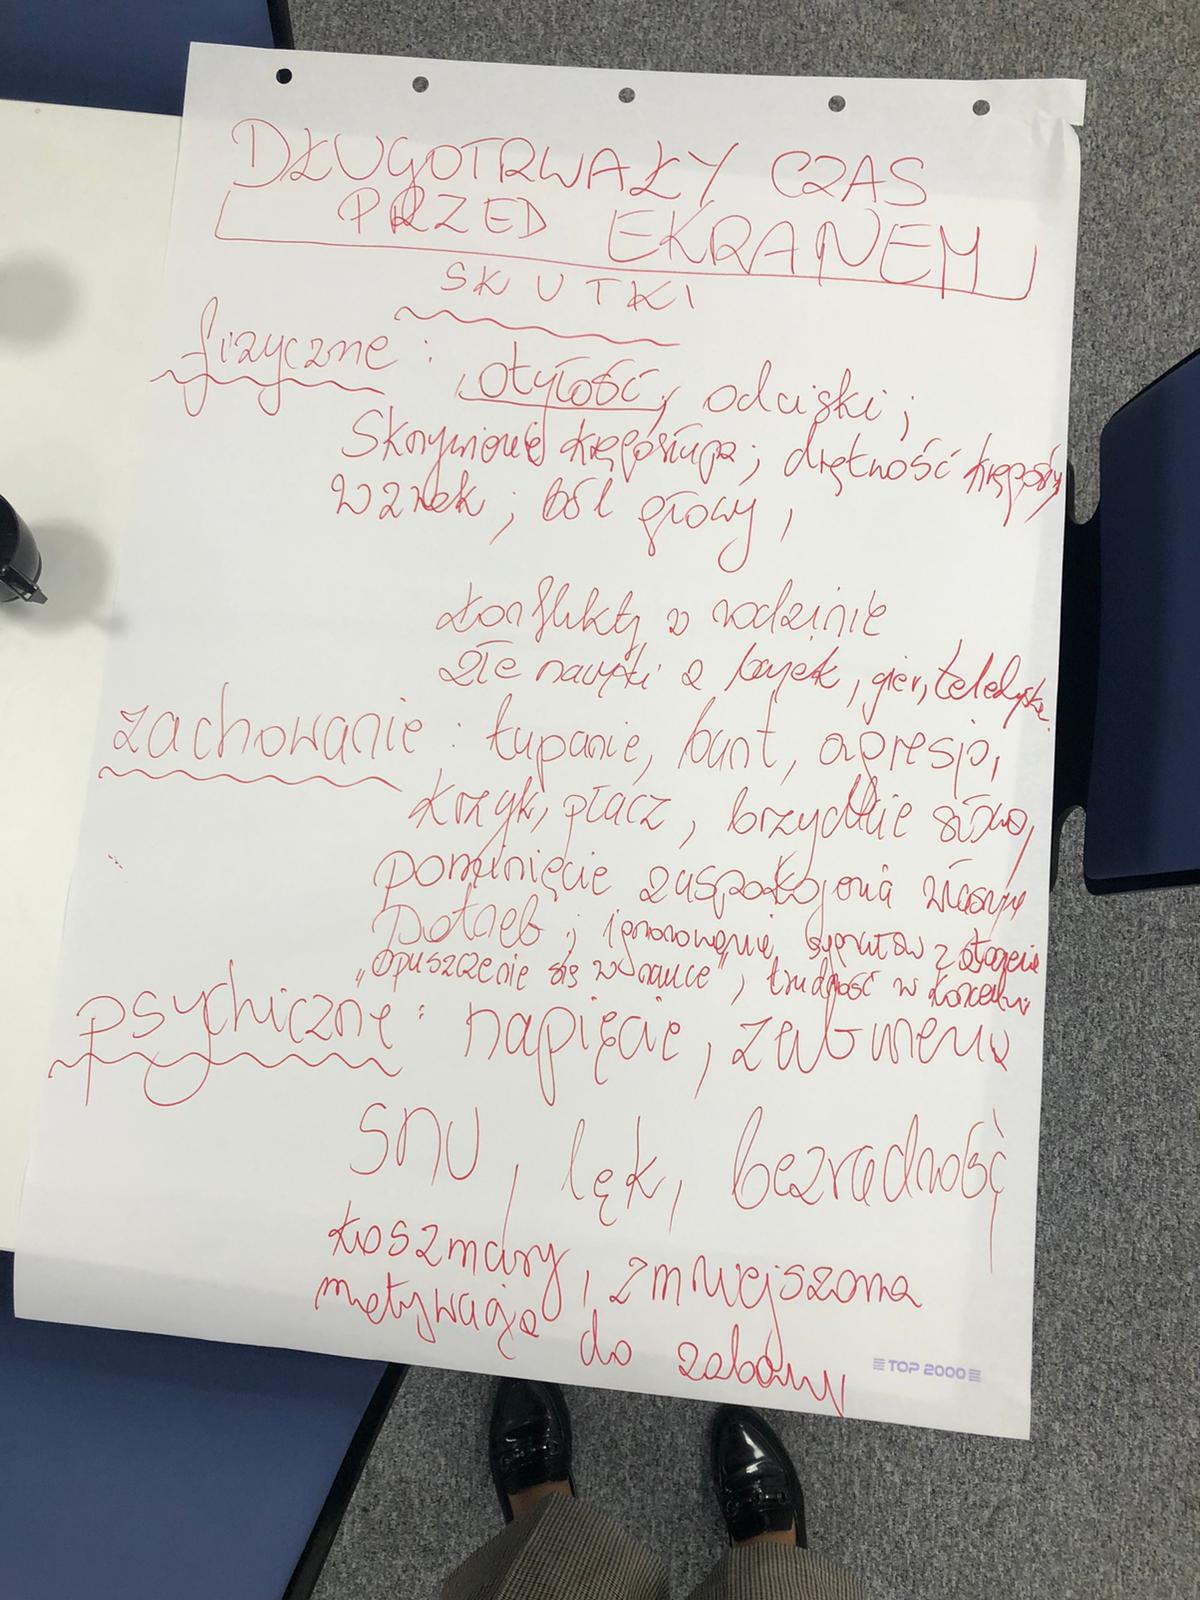 DŁUGOTRWAŁY CZAS
PRZED EKRANEM
SKUTKI
fizyczne: otyłość; odciski;
Skrzywienie kręgosłupa; drętwość
wzrok; ból głowy,
konflikty w rodzinie
złe nawyki z bajek, gier,
zachowanie: tupanie, bunt, agresja,
krzyk, płacz, brzydkie słowa,
pominięcie zaspokojenia własnych
potrzeb; ignorowanie sygnałów z otoczenia
„opuszczenie się w nauce", trudność w
psychiczne: napięcie, zaburzenia
SNU, lęk, bezradność,
koszmary, zmniejszona
motywacja do zabawy
TOP 2000